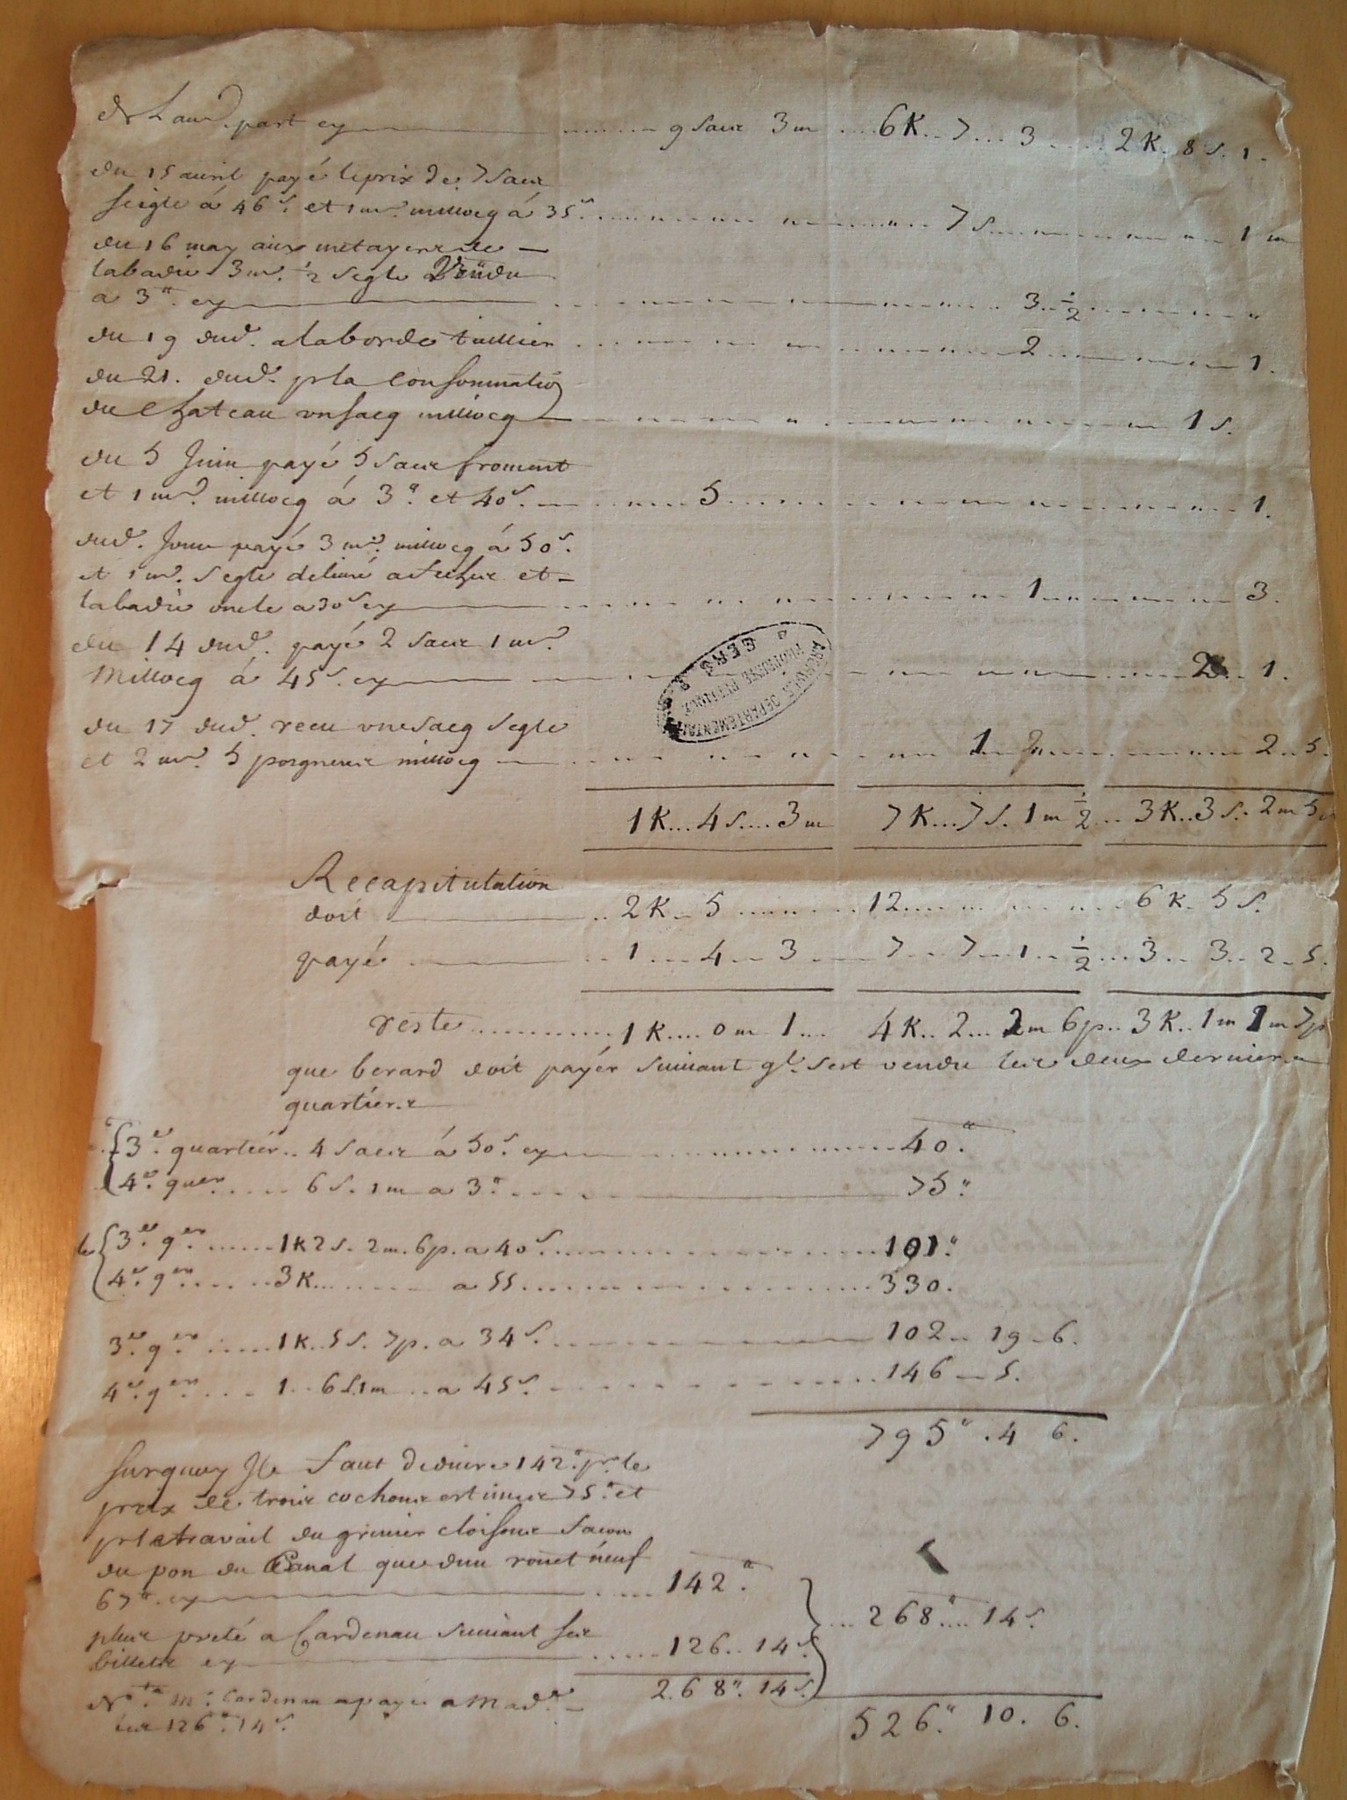 de Laud. part cy ........ 9 sacs 3m .... 6K.. 7... 3 ..... 2K. 8s. 1.
du 15 auril payé le prix de 7 sacs
seigle á 46s. et 1 mr. millocq á 35s ........ 7s ........ 1m
du 16 may aux metayers de
labadie 3mr. ½ segle Vendu
a 3#. cy ........ 3. ½ ........ "
du 19 dud. a laborde tuillier ........ 2 ........ 1.
du 21. dud. pr la Consommation
du Chateau un sacq millocq ........ 1 s.
du 5 Juin payé 5 sacs froment
et 1 mr. millocq á 3# et 40s. ..... 5 ........ 1.
dud. Jour payé 3 mr. millocq á 50s.
et 1 mr. segle deliuré a et
labadie oncle a 30s cy ........ 1 ........ 3.
du 14 dud. payé 2 sacs 1 mr
Millocq á 45s. cy ........ 2 .. 1.
ARCHIVES DEPARTEMENTALES
GERS
du 17 dud. recu un sacq segle
et 2 mr. 5 poigneres millocq ........ 1 ........ 2 .. 5.
1K... 4s.... 3m 7K... 7s. 1m ½ ... 3K.. 3s.. 2m 5
Recapitulation
doit ........ 2K.. 5 ........ 12 ........ 6K. 5s.
payé ........ 1 .... 4 .. 3 .... 7 .. 7 .. 1 .. ½ ... 3 .. 3 .. 2 .. 5.
reste ........ 1K.... 0m 1 ... 4K.. 2 ... 2m 6p.. 3K.. 1m 1m 7p
que berard doit payér suiuant ql. s'est vendu les deux derniers
quartiers
3e. quartiér .. 4 sacs á 50s. cy ........ 40.#
4e. quer ..... 6s. 1m a 3# ........ 75#
3e. qer ...... 1K 2s. 2m. 6p. a 40s ........ 101#
4e. qer ..... 3K ........ a 55 ........ 330.
3e. qer ..... 1K.. 5s. 7p. a 34s. ........ 102 .. 19 .. 6.
4e. qer .... 1 .. 6s. 1m ... a 45s. ........ 146 .. 5.
795# . 4 6.
surquoy Il faut deduire 142# pr. le
prix de trois cochons estimés 75# et
pr le trauail du grenier cloisons facon
du pon du Canal que dun rouet neuf
67#. cy ........ 142.#
... 268# .... 14s.
plus preté a Cardenau suiuant ses
billets cy ........ 126.. 14s
268#. 14s.
Nota Mr. Cardenau a payé a Mad.
les 126# 14s.
526.# 10. 6.